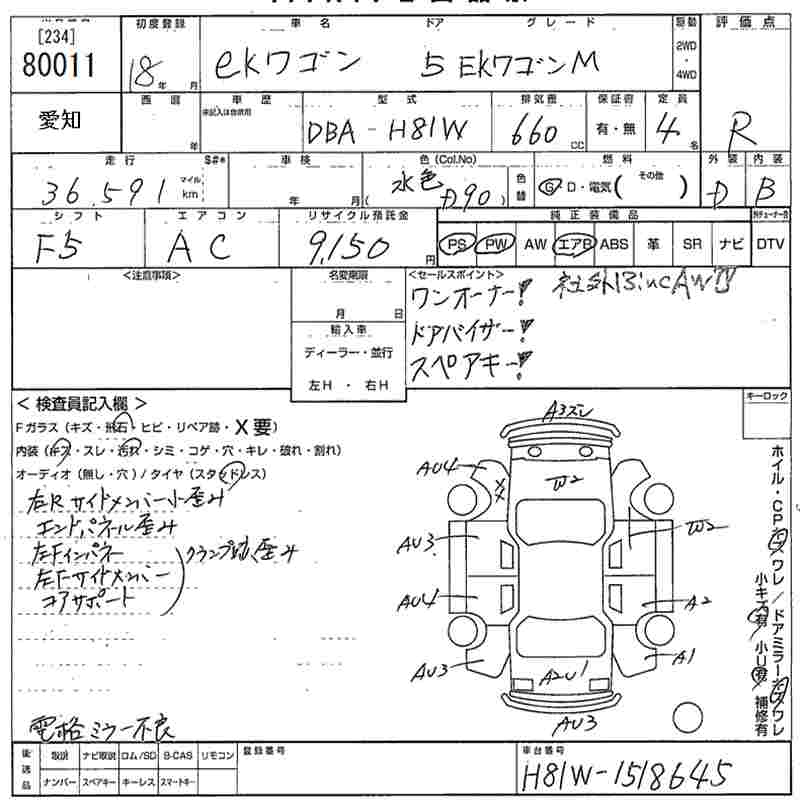 [234]
80011
初度登録 車名 ドア グレード 駆動 評価点
18年 月 ekワゴン 5 EKワゴンM 2WD・4WD
愛知
車歴 型式 排気量 保証書 定員
年 未記入は自家用 DBA-H81W 660 CC 有・無 4名 R
走行 S#* 車検 色(Col.No) 燃料 外装 内装
36,591 マイル km 年 月 水色 (D90) 色替 G・D・電気( その他 ) D B
シフト エアコン リサイクル預託金 純正装備品
F5 AC 9,150円 PS PW AW エアB ABS 革 SR ナビ DTV
<注意事項> 名変期限 <セールスポイント>
月 日 ワンオーナー!
輸入車 ドアバイザー!
ディーラー・並行 スペアキー!
左H・右H
< 検査員記入欄 > キーロック
Fガラス(キズ・飛石・ヒビ・リペア跡・X要)
内装(キズ・スレ・汚れ・シミ・コゲ・穴・キレ・破れ・割れ)
オーディオ(無し・穴)/タイヤ(スタッドレス)
左Rサイドメンバー小歪み
エンドパネル歪み
左Fインパネー
左Fサイドメンバー クランプ跡、歪み
コアサポート
電格ミラー不良
A3ズレ
AU4 XX W2
AU3 W2
AU4 A2
AU3 A2U1 A1
AU3
ホイル・CPキズワレ/ドアミラーキズワレ
小キズ有 小U有 補修有
後送品 取説 ナビ取説 ロム/SD B-CAS リモコン 登録番号 車台番号
ナンバー スペアキー キーレス スマートキー H81W-1518645